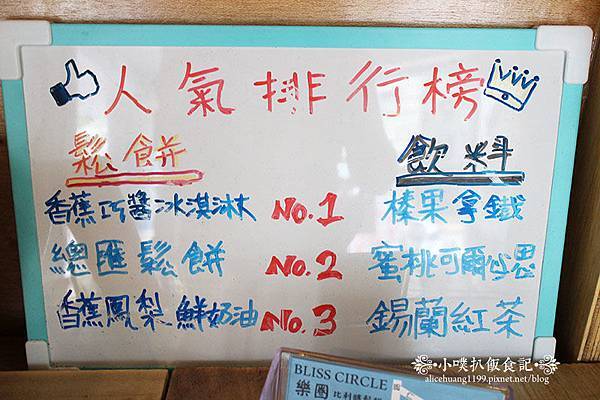 人氣排行榜
鬆餅 飲料
香蕉巧醬冰淇淋 NO.1 榛果拿鐵
總匯鬆餅 NO.2 蜜桃可爾必思
香蕉鳳梨鮮奶油 NO.3 錫蘭紅茶
BLISS CIRCLE
樂圈 比利時鬆餅
小噗扒飯食記
alicehuang1199.pixnet.net/blog